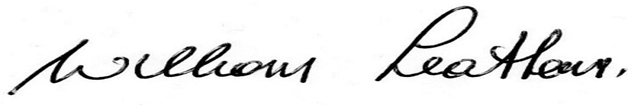 William Leatham.